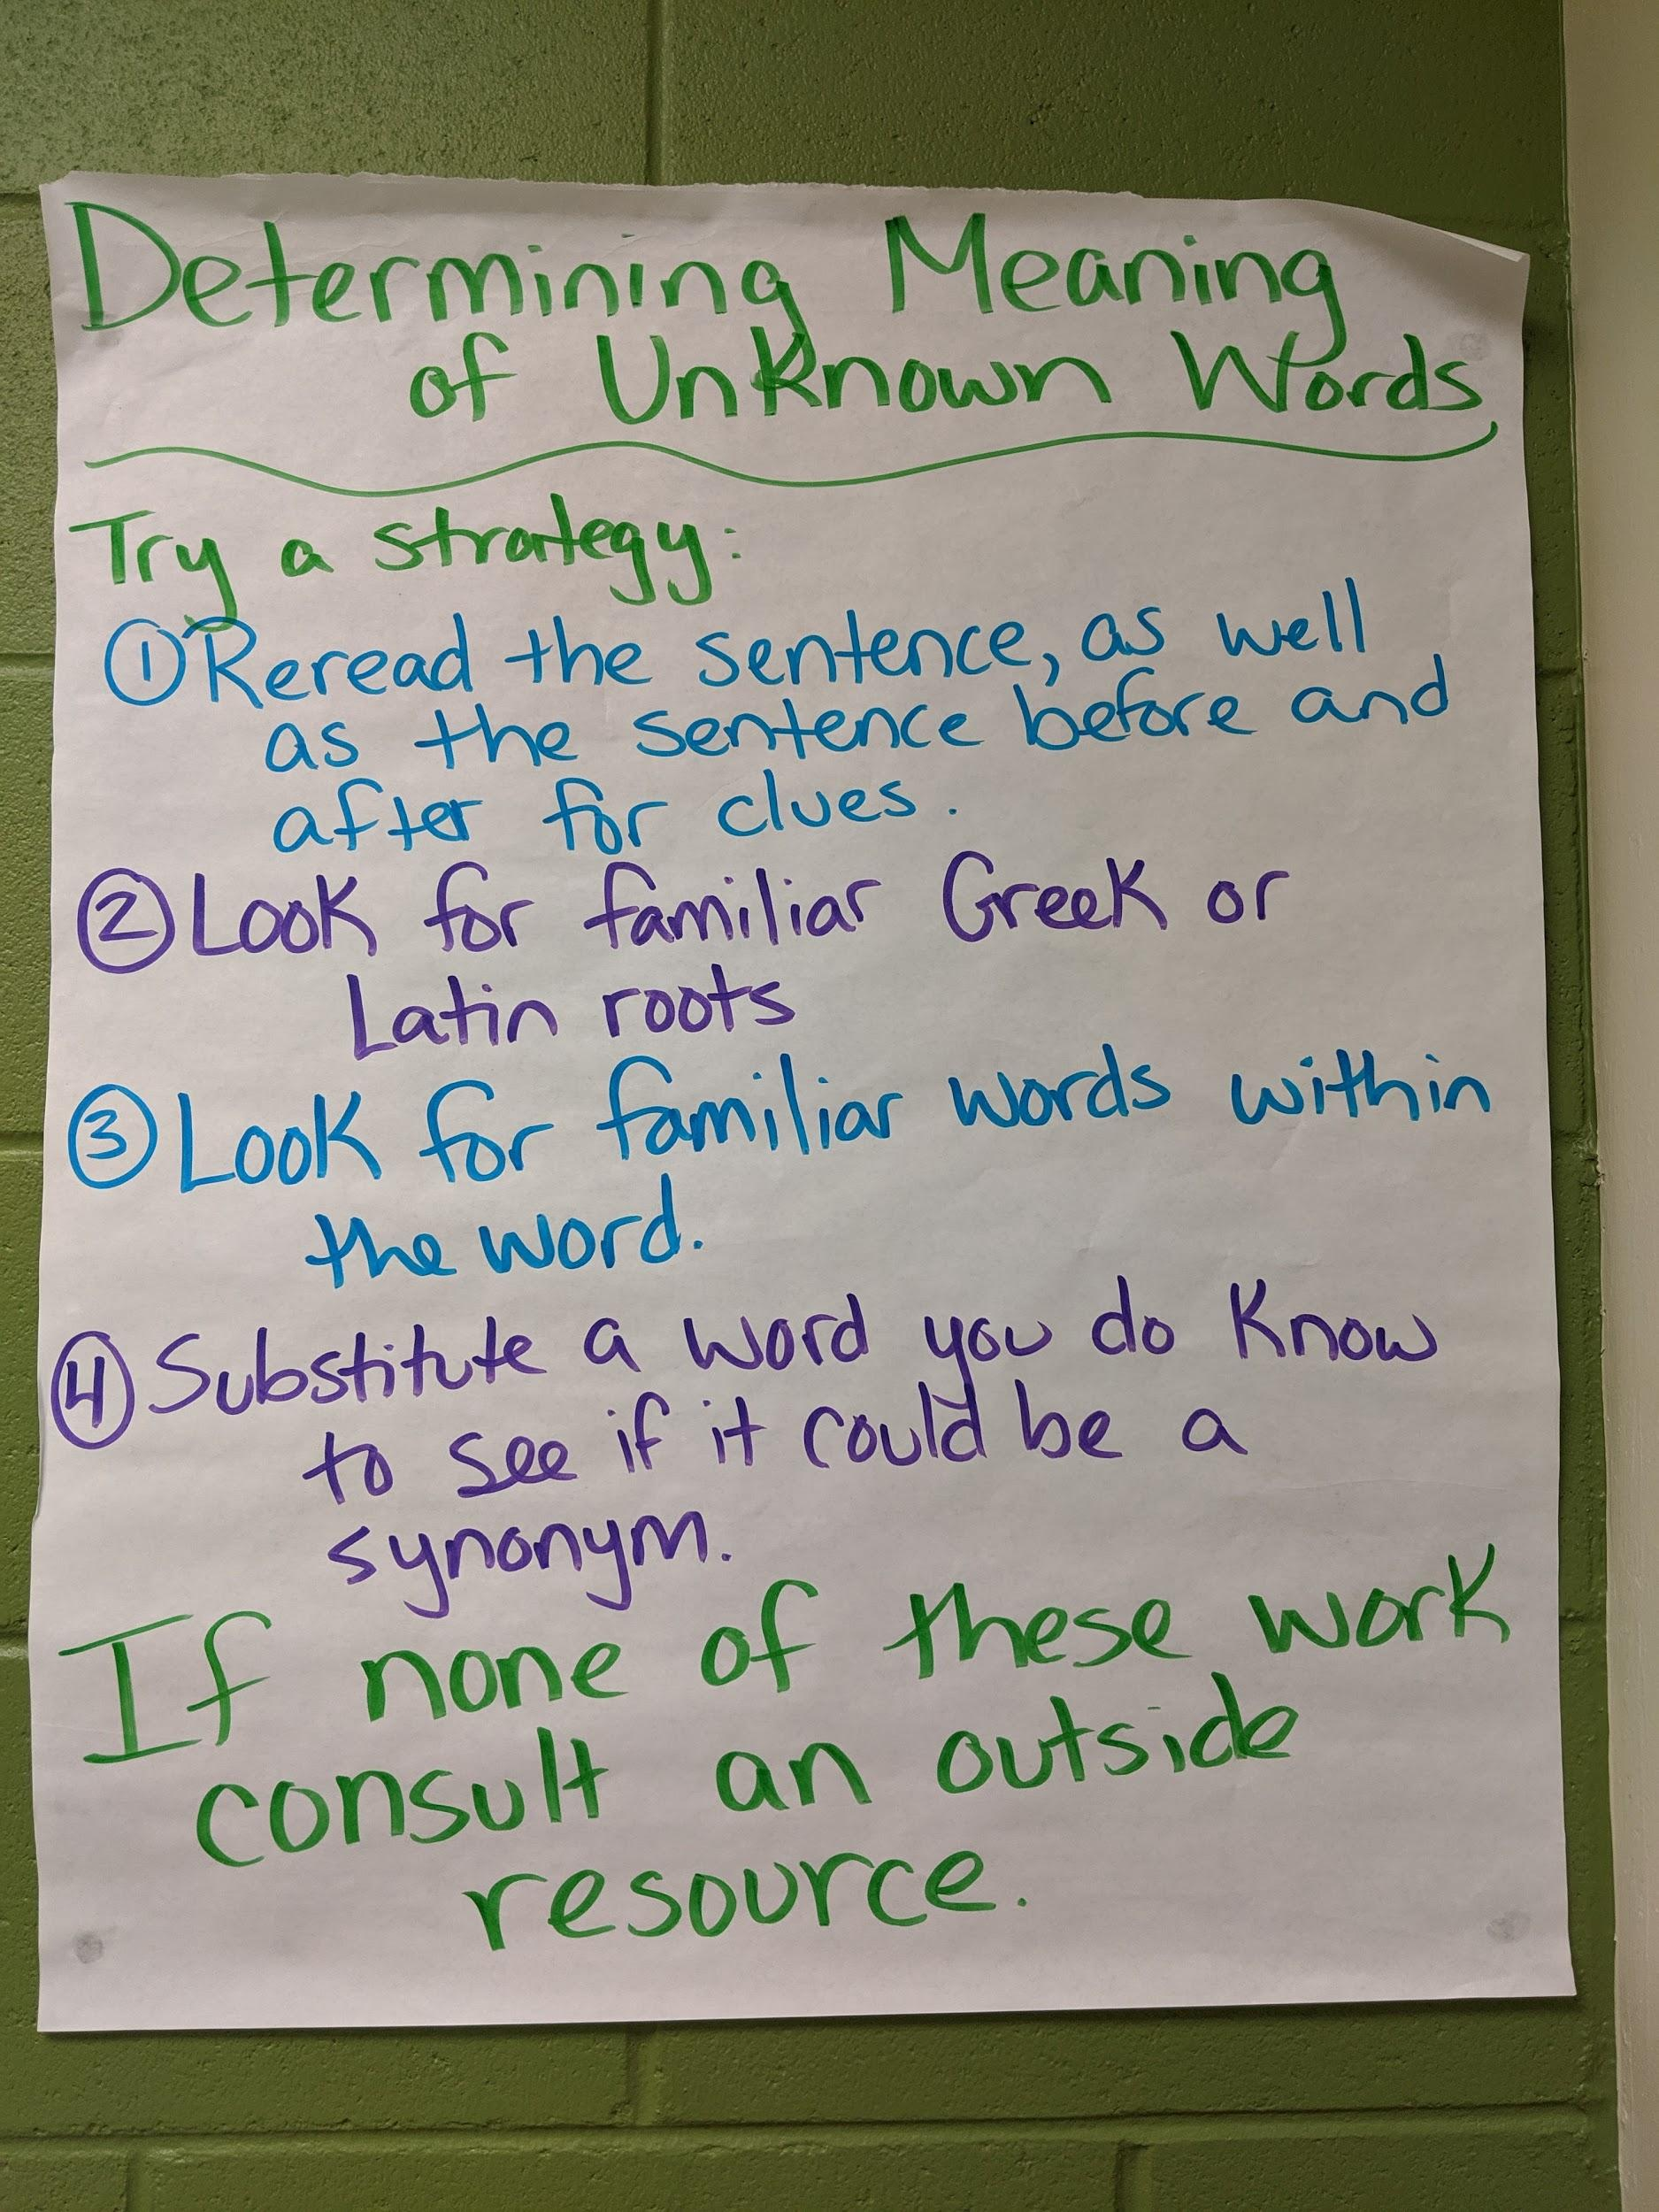 Determining Meaning
of Unknown Words
Try a strategy:
① Reread the sentence, as well
as the sentence before and
after for clues.
② Look for familiar Greek or
Latin roots
③ Look for familiar words within
the word.
④ Substitute a word you do know
to see if it could be a
synonym.
If none of these work
consult an outside
resource.